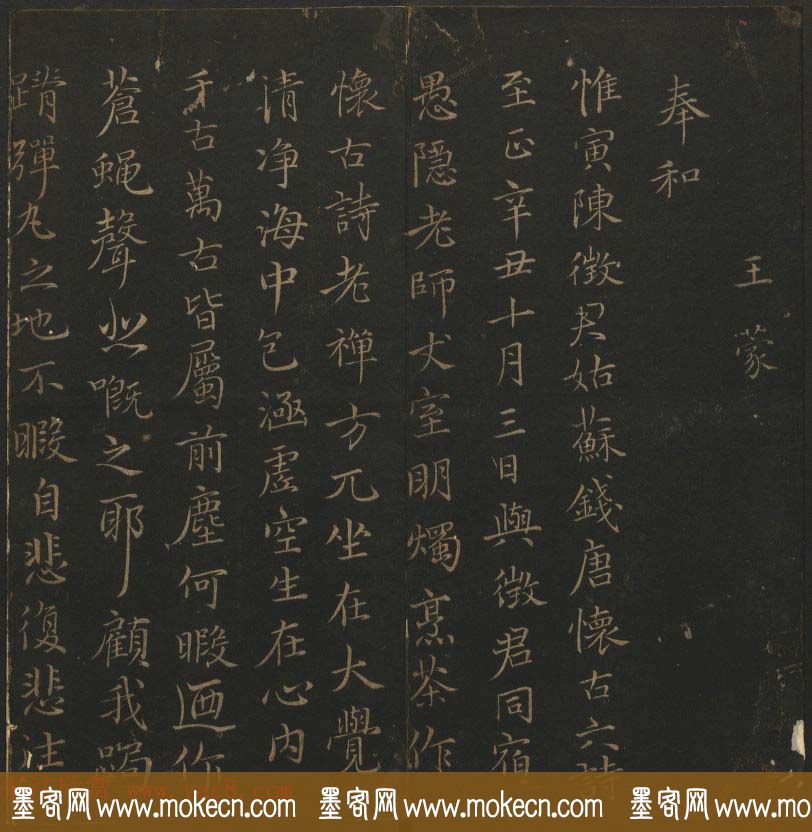 王蒙
奉和
惟寅陳徵君姑蘇錢唐懷古六詩
至正辛丑十月三日與徵君同宿
愚隱老師丈室明燭烹茶作
懷古詩老禪方兀坐在大覺
清净海中包涵虛空生在心内
千古萬古皆屬前塵何暇迺作
蒼蠅聲悲嘅之耶顧我跼
蹐彈丸之地不暇自悲復悲往
墨客网 www.mokecn.com 墨客网 www.mokecn.com 墨客网 www.mo